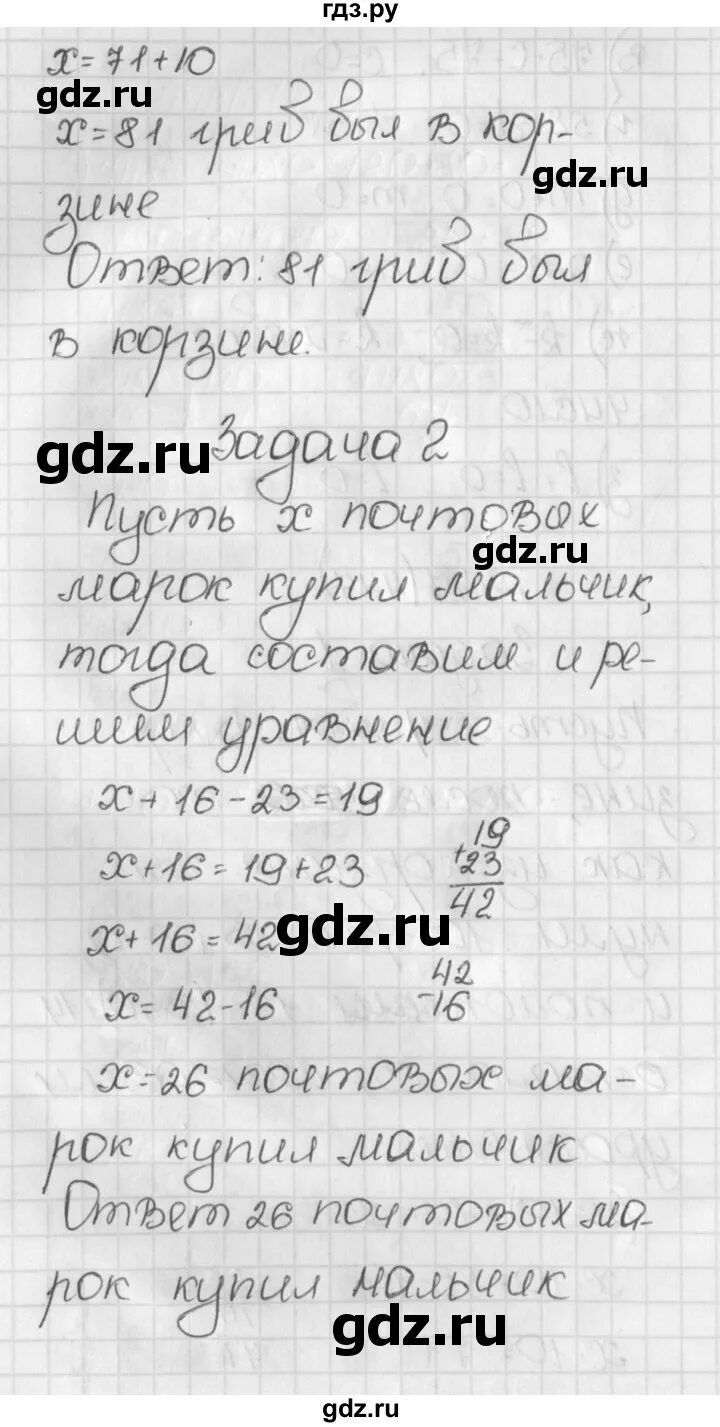 гдз.ру
x=71+10
gdz.ru
x=81 гриб был в кор-
gdz.ru
зине
Ответ: 81 гриб был
в корзине.
gdz.ru
Задача 2
Пусть x почтовых
gdz.ru
марок купил мальчик,
тогда составим и ре-
шим уравнение
x+16-23=19
x+16=19+23
19
+23
42
x+16=42
gdz.ru
x=42-16
42
-16
x=26 почтовых ма-
рок купил мальчик
Ответ 26 почтовых ма-
рок купил мальчик
gdz.ru
gdz.ru